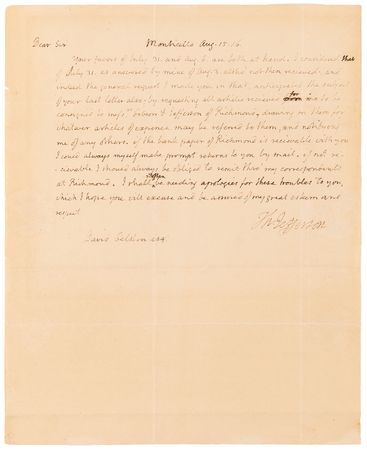 Dear Sir Monticello Aug. 15. 16.
Your favors of July 31. and Aug. 8. are both at hand. I considered that
of July 31. as answered by mine of Aug. 3. altho' not then recieved, and
indeed the general request I made you in that, anticipated the subject
of your last letter also, by requesting all articles recieved for me to be
consigned to Gibson & Jefferson of Richmond, drawing on them for
whatever articles of expence may be referred to them, and notifying
me of any others. if the bank paper of Richmond is recievable with you
I could always myself make prompt returns to you by mail. if not re-
cievable I should always be obliged to remit thro' my correspondents
at Richmond. I shall often be needing apologies for these troubles to you,
which I hope you will excuse and be assured of my great esteem and
respect
Th: Jefferson
David Gelston esq.